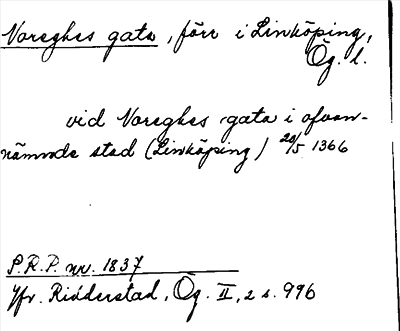 Noreghes gata, förr i Linköping,
Ög. l.
vid Noreghes gata i ofvan-
nämnde stad (Linköping) 20/5 1366
P.R.P. nr. 1837
Jfr. Ridderstad, Ög. II, 2 s. 996